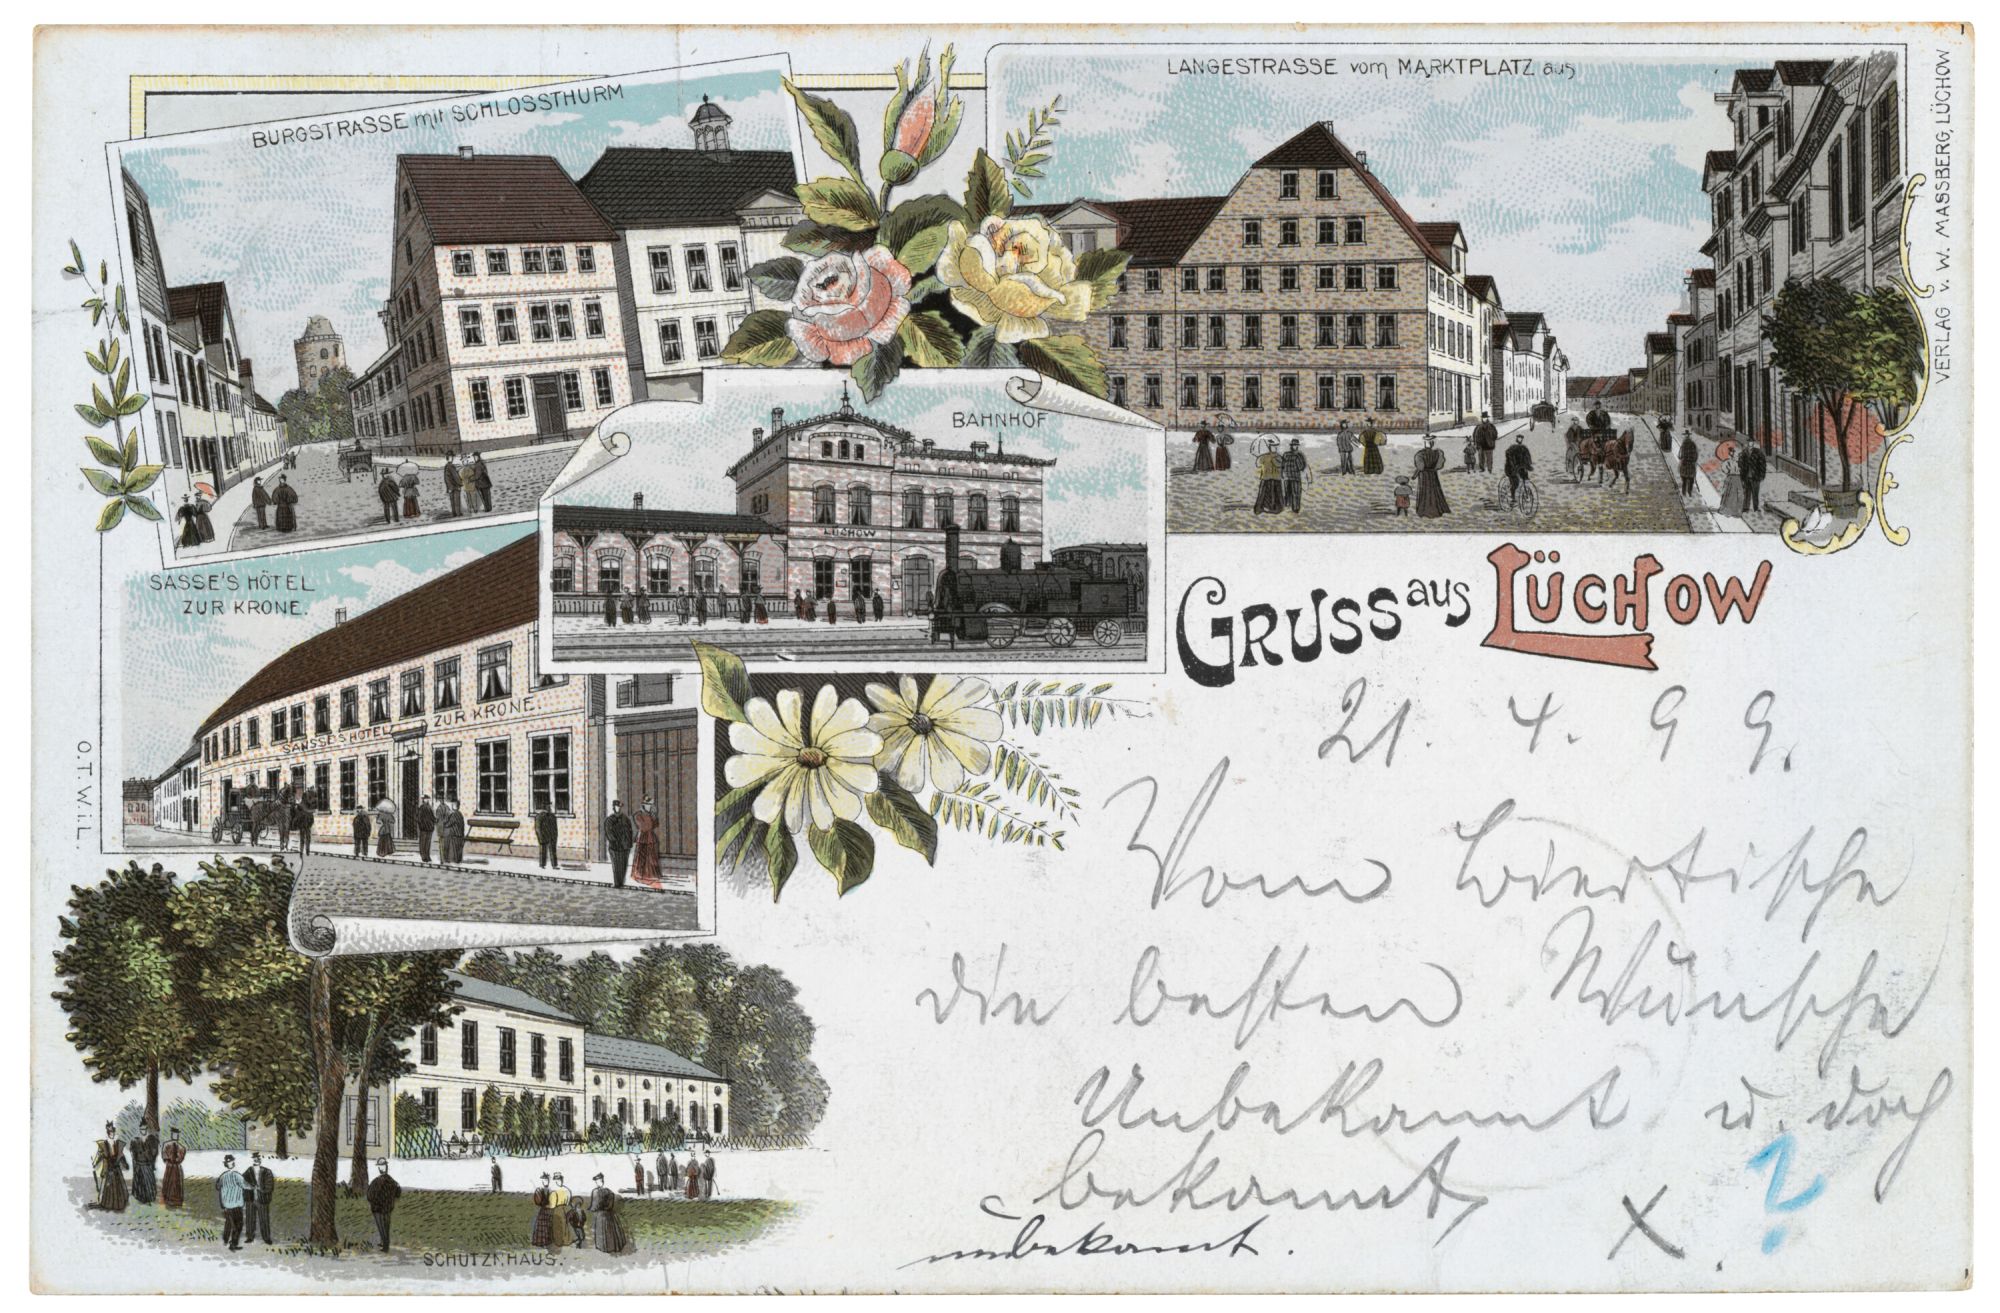 BURGSTRASSE mit SCHLOSSTHURM
LANGESTRASSE vom MARKTPLATZ aus
VERLAG v. W. MASSBERG, LÜCHOW
BAHNHOF
LÜCHOW
SASSE'S HÔTEL
ZUR KRONE.
SANSSE'S HOTEL ZUR KRONE.
GRUSS aus LÜCHOW
21. 4. 99.
Vom Biertische
die besten Wünsche
Unbekannt u. doch
bekannt
X. ?
unbekannt.
O.T.W.i.L.
SCHÜTZN.HAUS.